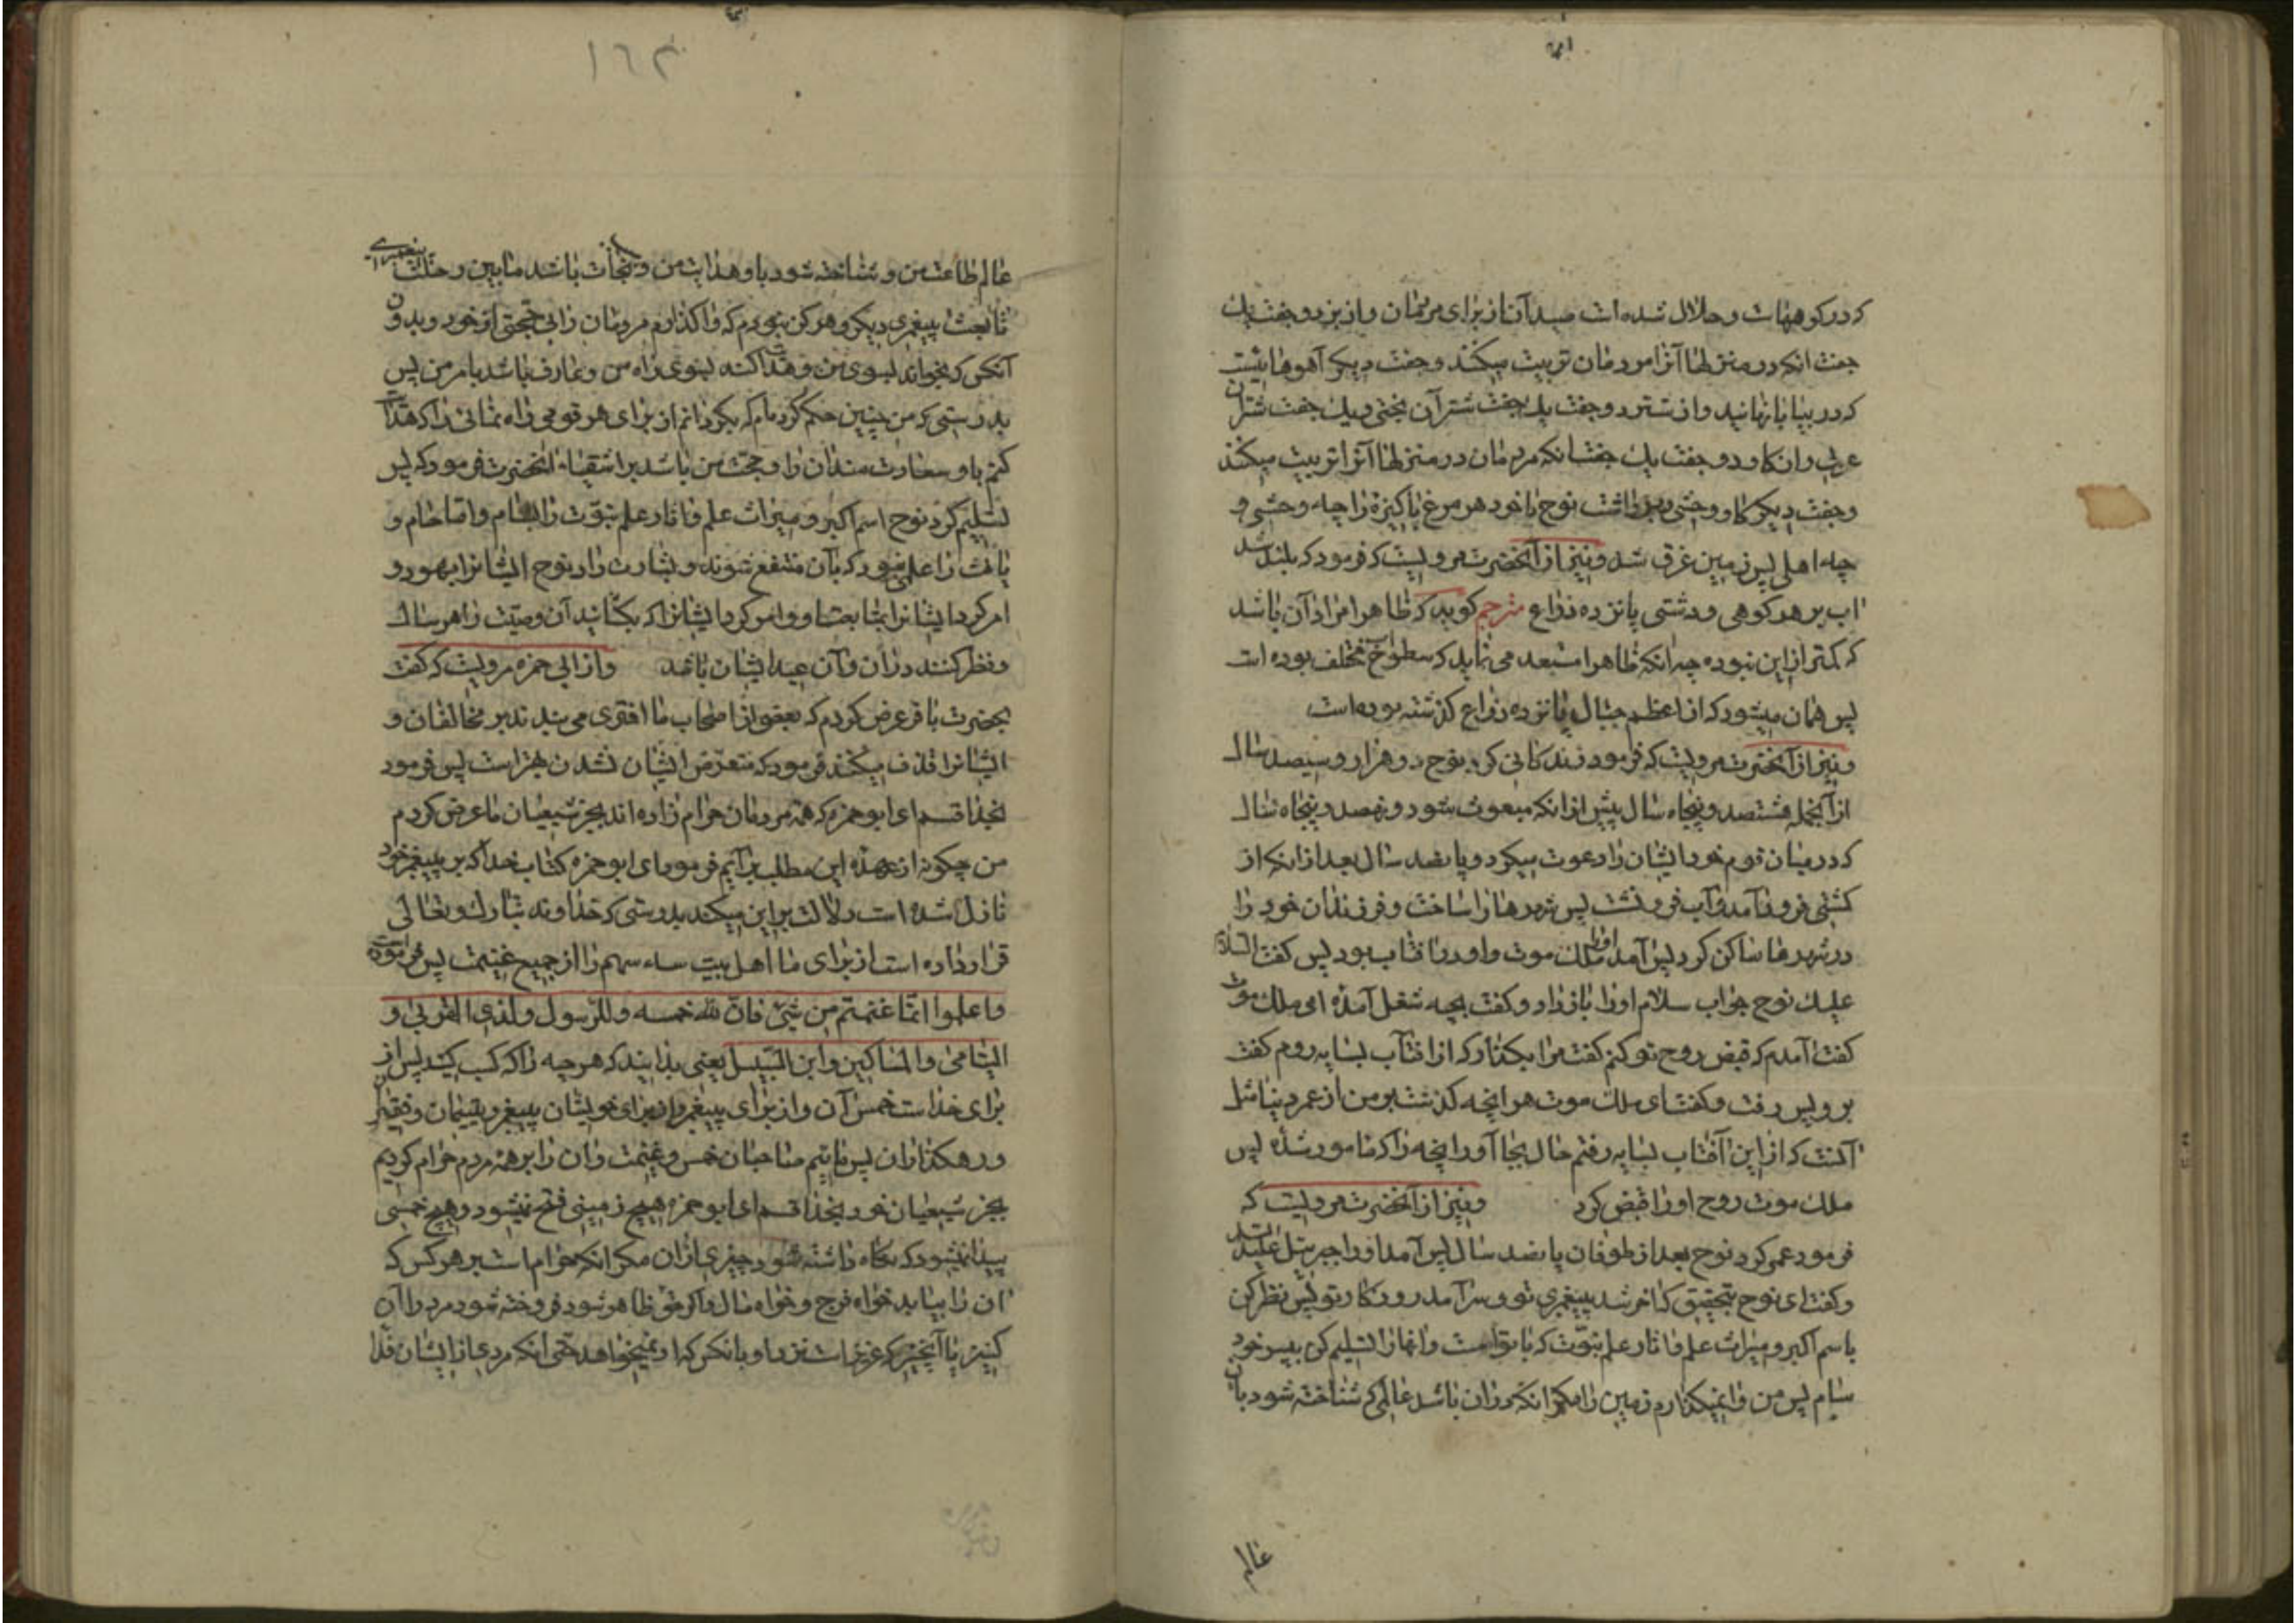 که در کوههاست و حلال شده است صید آنها از برای مردمان و از بز دو جفت یک
جفت آنکه در منزلها آنرا مردمان تربیت میکنند و جفت دیگر آهوهائیست
که در بیابانهایند و از شتر دو جفت یک جفت شتران بختی و یک جفت شتران
عربی و از گاو دو جفت یک جفت آنکه مردمان در منزلها آنرا تربیت میکنند
و جفت دیگر گاو وحشی و برداشت نوح با خود هر مرغ پاکیزه را چه وحشی و
چه اهلی پس زمین غرق شد و نیز از آنحضرت مرویست که فرمود که بلند شد
آب بر هر کوهی و دشتی پانزده ذراع مترجم کوید که ظاهرا مراد آن باشد
که کمتر از این نبوده چه آنکه ظاهرا مستبعد می نماید که سطوح مختلف بوده است
پس همان میشود که از اعظم جبال پانزده ذراع گذشته بوده است
و نیز از آنحضرت مرویست که فرمود زندکانی کرد نوح دو هزار و سیصد سال
از آنجمله هشتصد و پنجاه سال پیش از آنکه مبعوث شود و نهصد و پنجاه سال
که در میان قوم خود ایشان را دعوت میکرد و پانصد سال بعد از آنکه از
کشتی فرود آمد و آب فرو نشست پس شهرها را ساخت و فرزندان خود را
در شهرها ساکن کرد پس آمد او را ملک موت و او در آفتاب بود پس کفت السلام
علیک نوح جواب سلام او را باز داد و کفت بچه شغل آمدهٔ ای ملک موت
کفت آمدم که قبض روح تو کنم کفت مرا بکذار که از آفتاب بسایه روم کفت
برو پس رفت و کفت ای ملک موت هر آنچه کذشت بر من از عمر دنیا مثل
آنست که از این آفتاب بسایه رفتم حال بجا آور آنچه را که مامور شدهٔ پس
ملک موت روح او را قبض کرد و نیز از آنحضرت مرویست که
فرمود عمر کرد نوح بعد از طوفان پانصد سال پس آمد او را جبرئیل علیه السلام
و کفت ای نوح بتحقیق که آخر شد پیغمبری تو و سر آمد روزکار تو پس نظر کن
باسم اکبر و میراث علم و آثار علم نبوت که با تو است و آنها را تسلیم کن بپسر خود
سام پس من وا نمیکذارم زمین را مکر آنکه در آن باشد عالمی که شناخته شود بآن
عالم
١٦٣
عالم طاعت من و شناخته شود باو هدایت من و نجات باشد مابین رحلت پیغمبری
تا بعثت پیغمبری دیکر و هرکز نبودم که واکذارم مردمان را بی حجتی از خود و بدون
آنکس که بخواند بسوی من و هدایت کند بسوی راه من و عارف باشد بامر من پس
بدرستی که من چنین حکم کرده ام که بکردانم از برای هر قومی راه نمائی را که هدایت
کنم باو سعادت مندان را و حجت من باشد بر اشقیاء آنحضرت فرمود که پس
تسلیم کرد نوح اسم اکبر و میراث علم و آثار علم نبوت را بسام و اما حام و
یافث را علمی نبود که بآن منتفع شوند و بشارت داد نوح ایشانرا بهود و
امر کرد ایشانرا بمتابعت او و امر کرد ایشانرا که بکشانید آن وصیت را هر سال
و نظر کنند در آن و آن عید ایشان باشد و از ابی حمزه مرویست که کفت
بحضرت باقر عرض کردم که بعضی از اصحاب ما افتری می بندند بر مخالفان و
ایشانرا قذف میکنند فرمود که متعرض ایشان نشدن بهتر است پس فرمود
بخدا قسم ای ابو حمزه که همه مردمان حرام زاده اند بجز شیعیان ما عرض کردم
من چکونه از عهده این مطلب برآیم فرمود ای ابو حمزه کتاب خدا که بر پیغمبر خود
نازل شده است دلالت بر این میکند بدرستی که خداوند تبارک و تعالی
قرار داده است از برای ما اهل بیت سه سهم را از جمیع غنیمت پس فرموده است
واعلموا انّما غنمتم من شیء فانّ لله خمسه وللرّسول ولذی القربی و
الیتامی والمساکین وابن السّبیل یعنی بدانید که هر چه را که کسب کنید پس از
برای خداست خمس آن و از برای پیغمبر و از برای خویشان پیغمبر و یتیمان و فقیران
و رهکذاران پس مائیم صاحبان خمس و غنیمت و آن را بر همه مردم حرام کردیم
بجز شیعیان خود بخدا قسم ای ابو حمزه هیچ زمینی فتح نیشود و هیچ خمسی
پیدا نمیشود که نکاه داشته شود چیزی از آن مکر آنکه حرام است بر هر کس که
آن را بیابد خواه فرج و خواه مال و اکر حق ظاهر شود فروخته شود مرد آن
کنیز با آنچیز که عزیز است نزد او بآنکس که او نمیخواهد حتی آنکه مردی از ایشان فدا